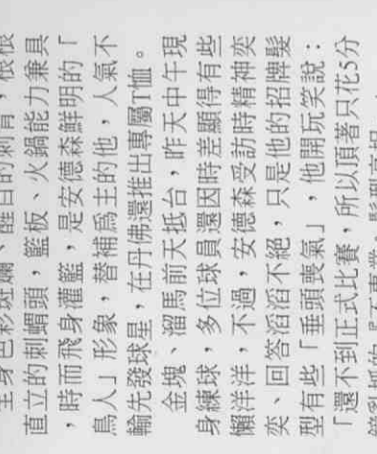 全身色彩斑斕、醒目的刺青，根根
直立的刺蝟頭，籃板、火鍋能力兼具
，時而飛身灌籃，是安德森鮮明的「
鳥人」形象，替補爲主的他，人氣不
輸先發球星，在丹佛還推出專屬T恤。
金塊、溜馬前天抵台，昨天中午現
身練球，多位球員還因時差顯得有些
懶洋洋，不過，安德森受訪時精神奕
奕、回答滔滔不絕，只是他的招牌髮
型有些「垂頭喪氣」，他開玩笑說：
「還不到正式比賽，所以頂著只花5分
鐘亂抓的『不專業』髮型亮相